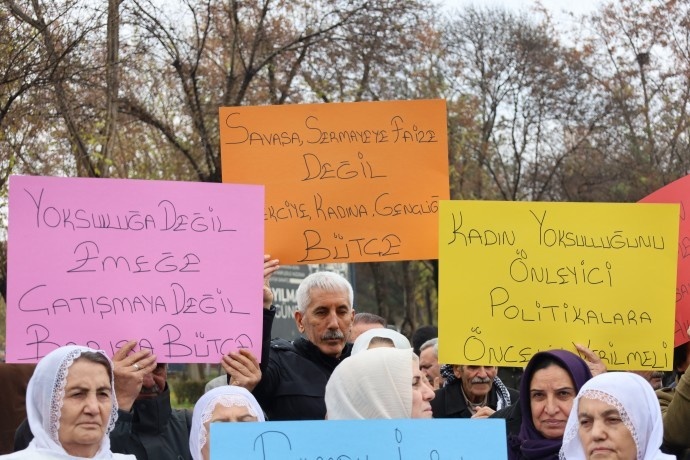 SAVAŞA, SERMAYEYE FAİZE
DEĞİL
KADINA, GENÇLİĞE
BÜTÇE
YOKSULUĞA DEĞİL
EMEĞE
ÇATIŞMAYA DEĞİL
BARIŞA BÜTÇE
KADIN YOKSULUĞUNU
ÖNLEYİCİ
POLİTİKALARA
ÖNCELİK VERİLMELİ